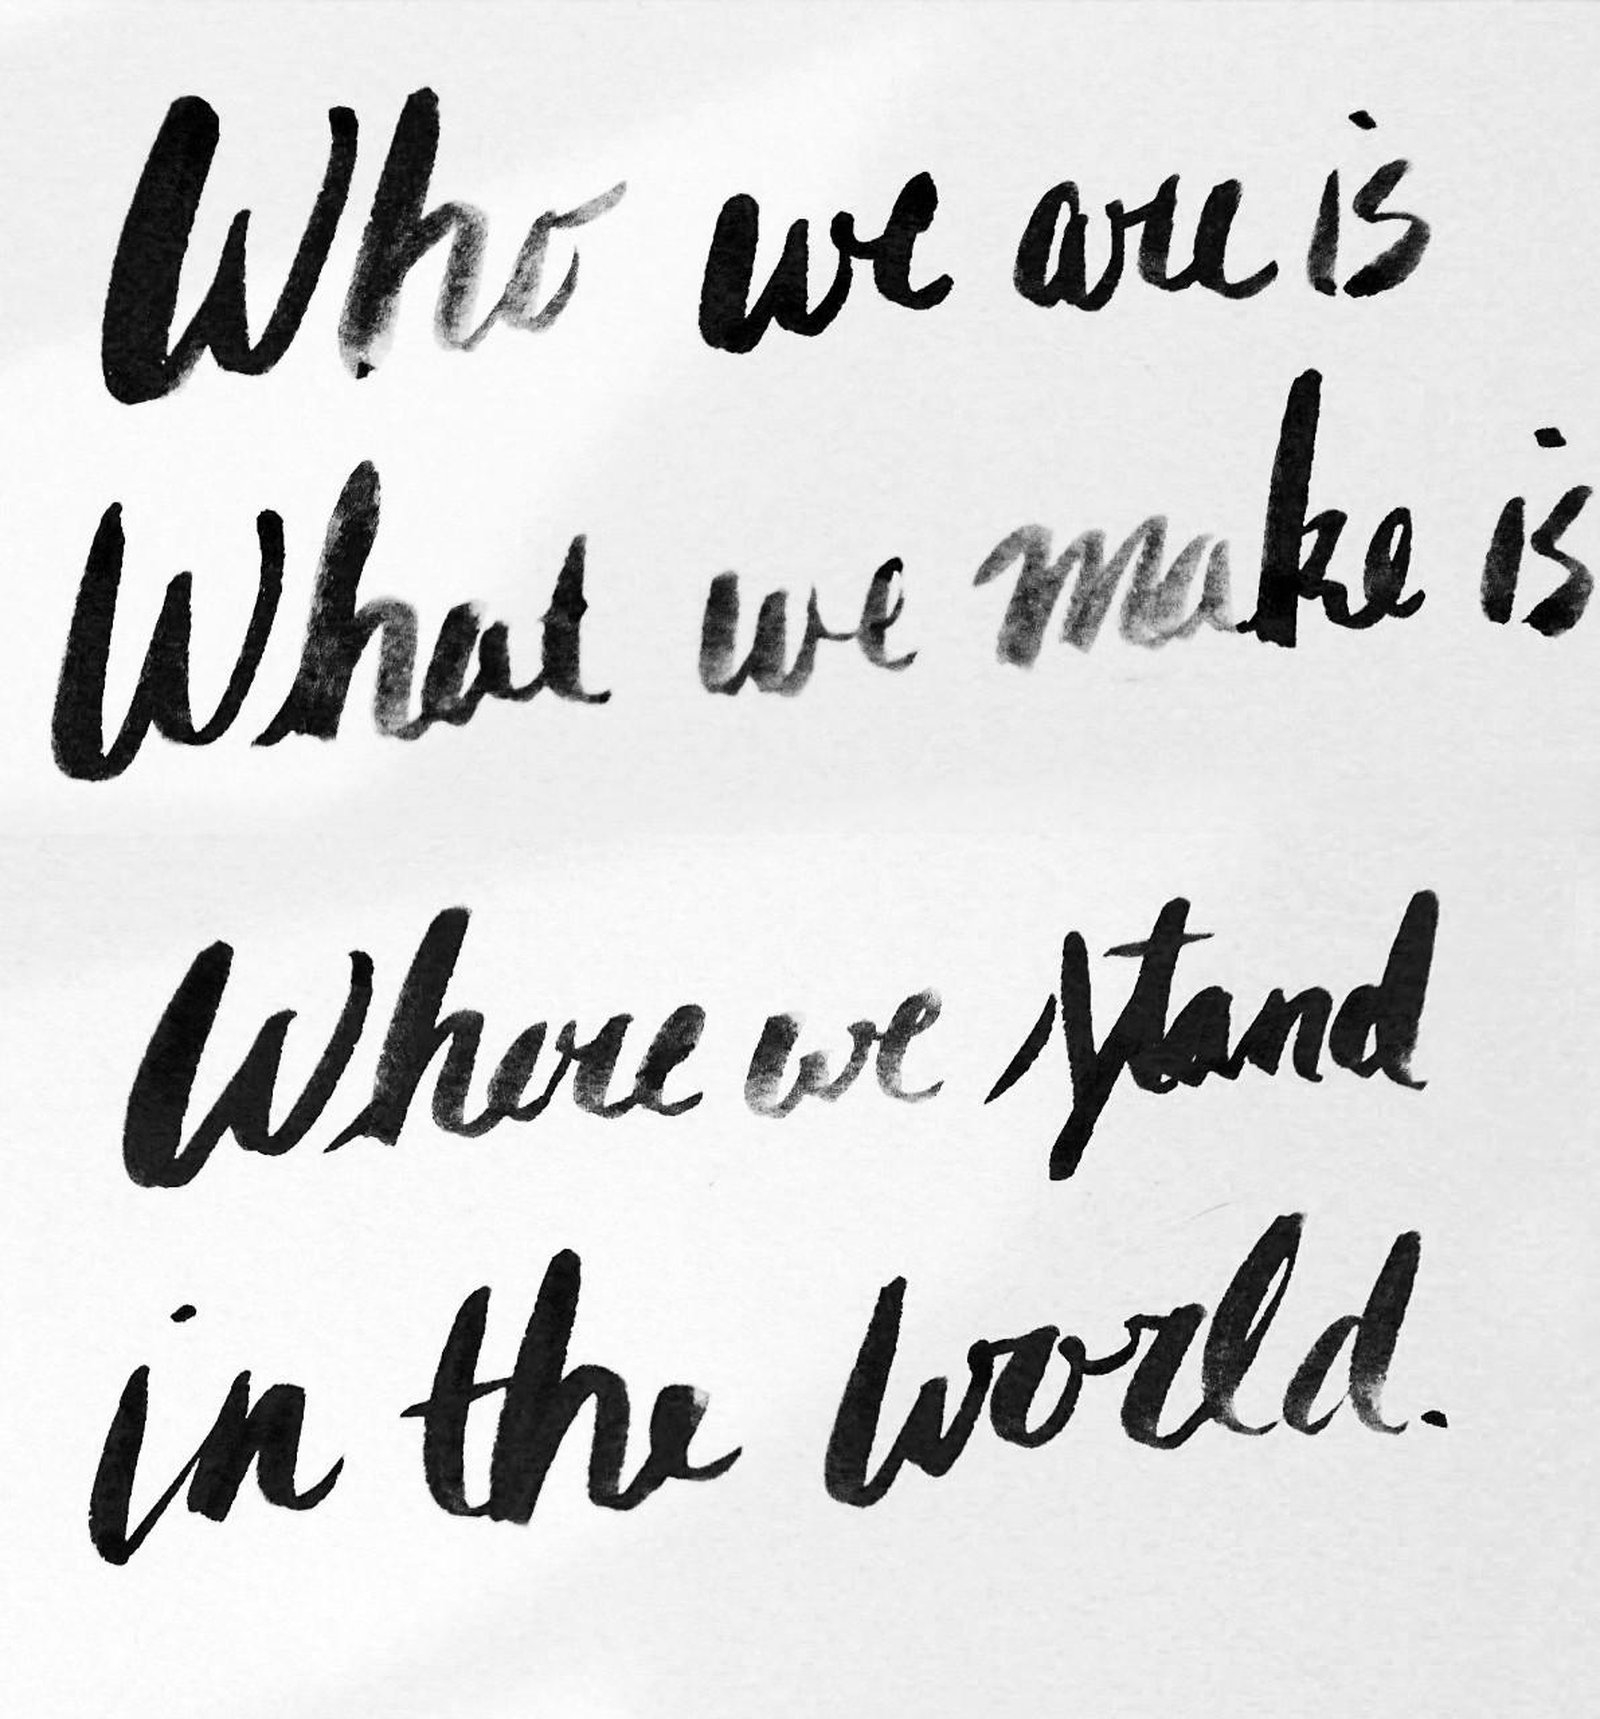 Who we are is
What we make is
Where we stand
in the world.